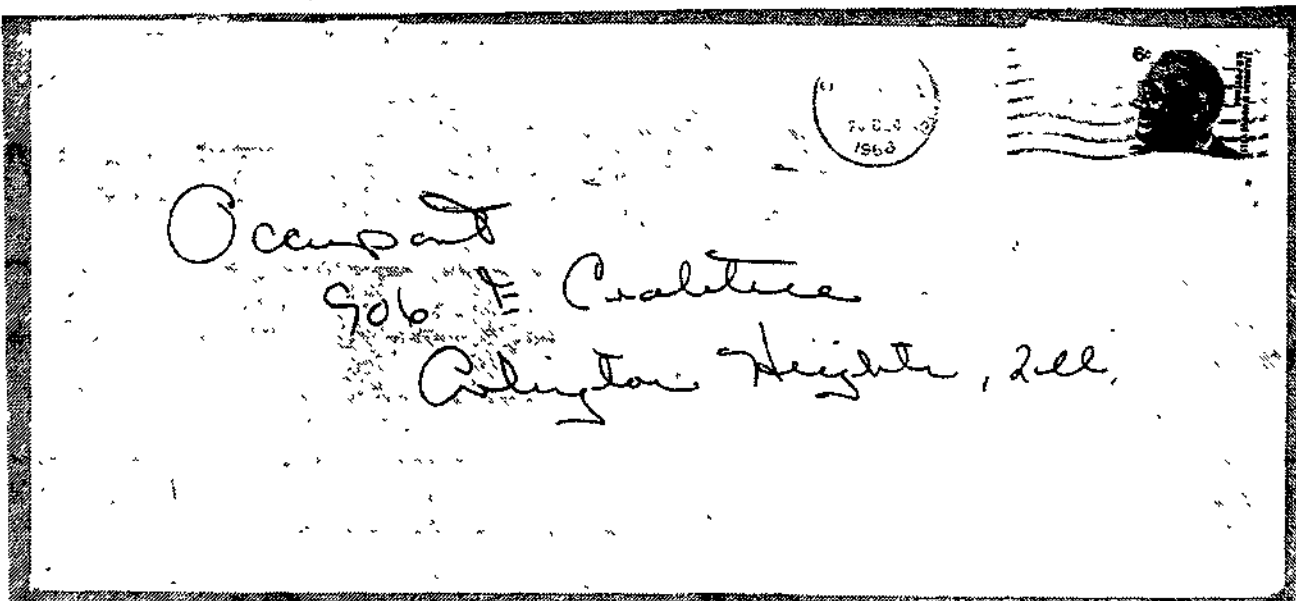 6¢
1968
Occupant
906 E Crabtree
Arlington Heights, Ill.